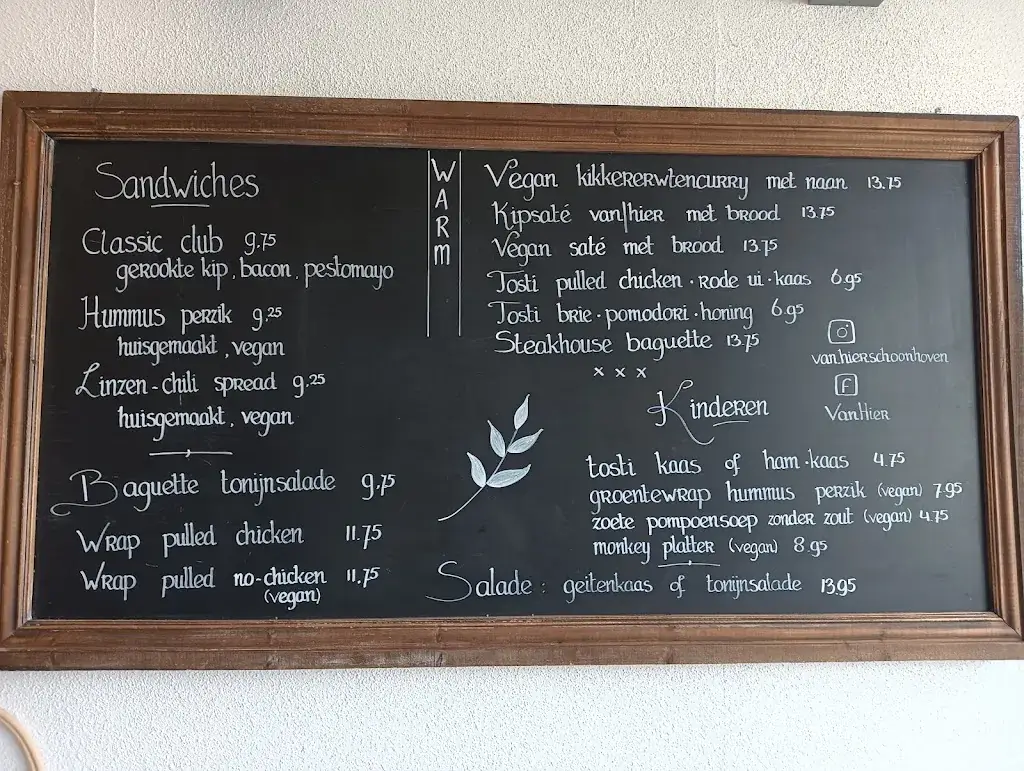 Sandwiches
Classic club 9.75
gerookte kip, bacon, pestomayo
Hummus perzik 9.25
huisgemaakt, vegan
Linzen-chili spread 9.25
huisgemaakt, vegan
Baguette tonijnsalade 9.75
Wrap pulled chicken 11.75
Wrap pulled no-chicken 11.75
(vegan)
WARM
Vegan kikkererwtencurry met naan 13.75
Kipsaté van|hier met brood 13.75
Vegan saté met brood 13.75
Tosti pulled chicken · rode ui · kaas 6.95
Tosti brie · pomodori · honing 6.95
Steakhouse baguette 13.75
x x x
van.hierschoonhoven
f
VanHier
Kinderen
tosti kaas of ham·kaas 4.75
groentewrap hummus perzik (vegan) 7.95
zoete pompoensoep zonder zout (vegan) 4.75
monkey platter (vegan) 8.95
Salade: geitenkaas of tonijnsalade 13.95